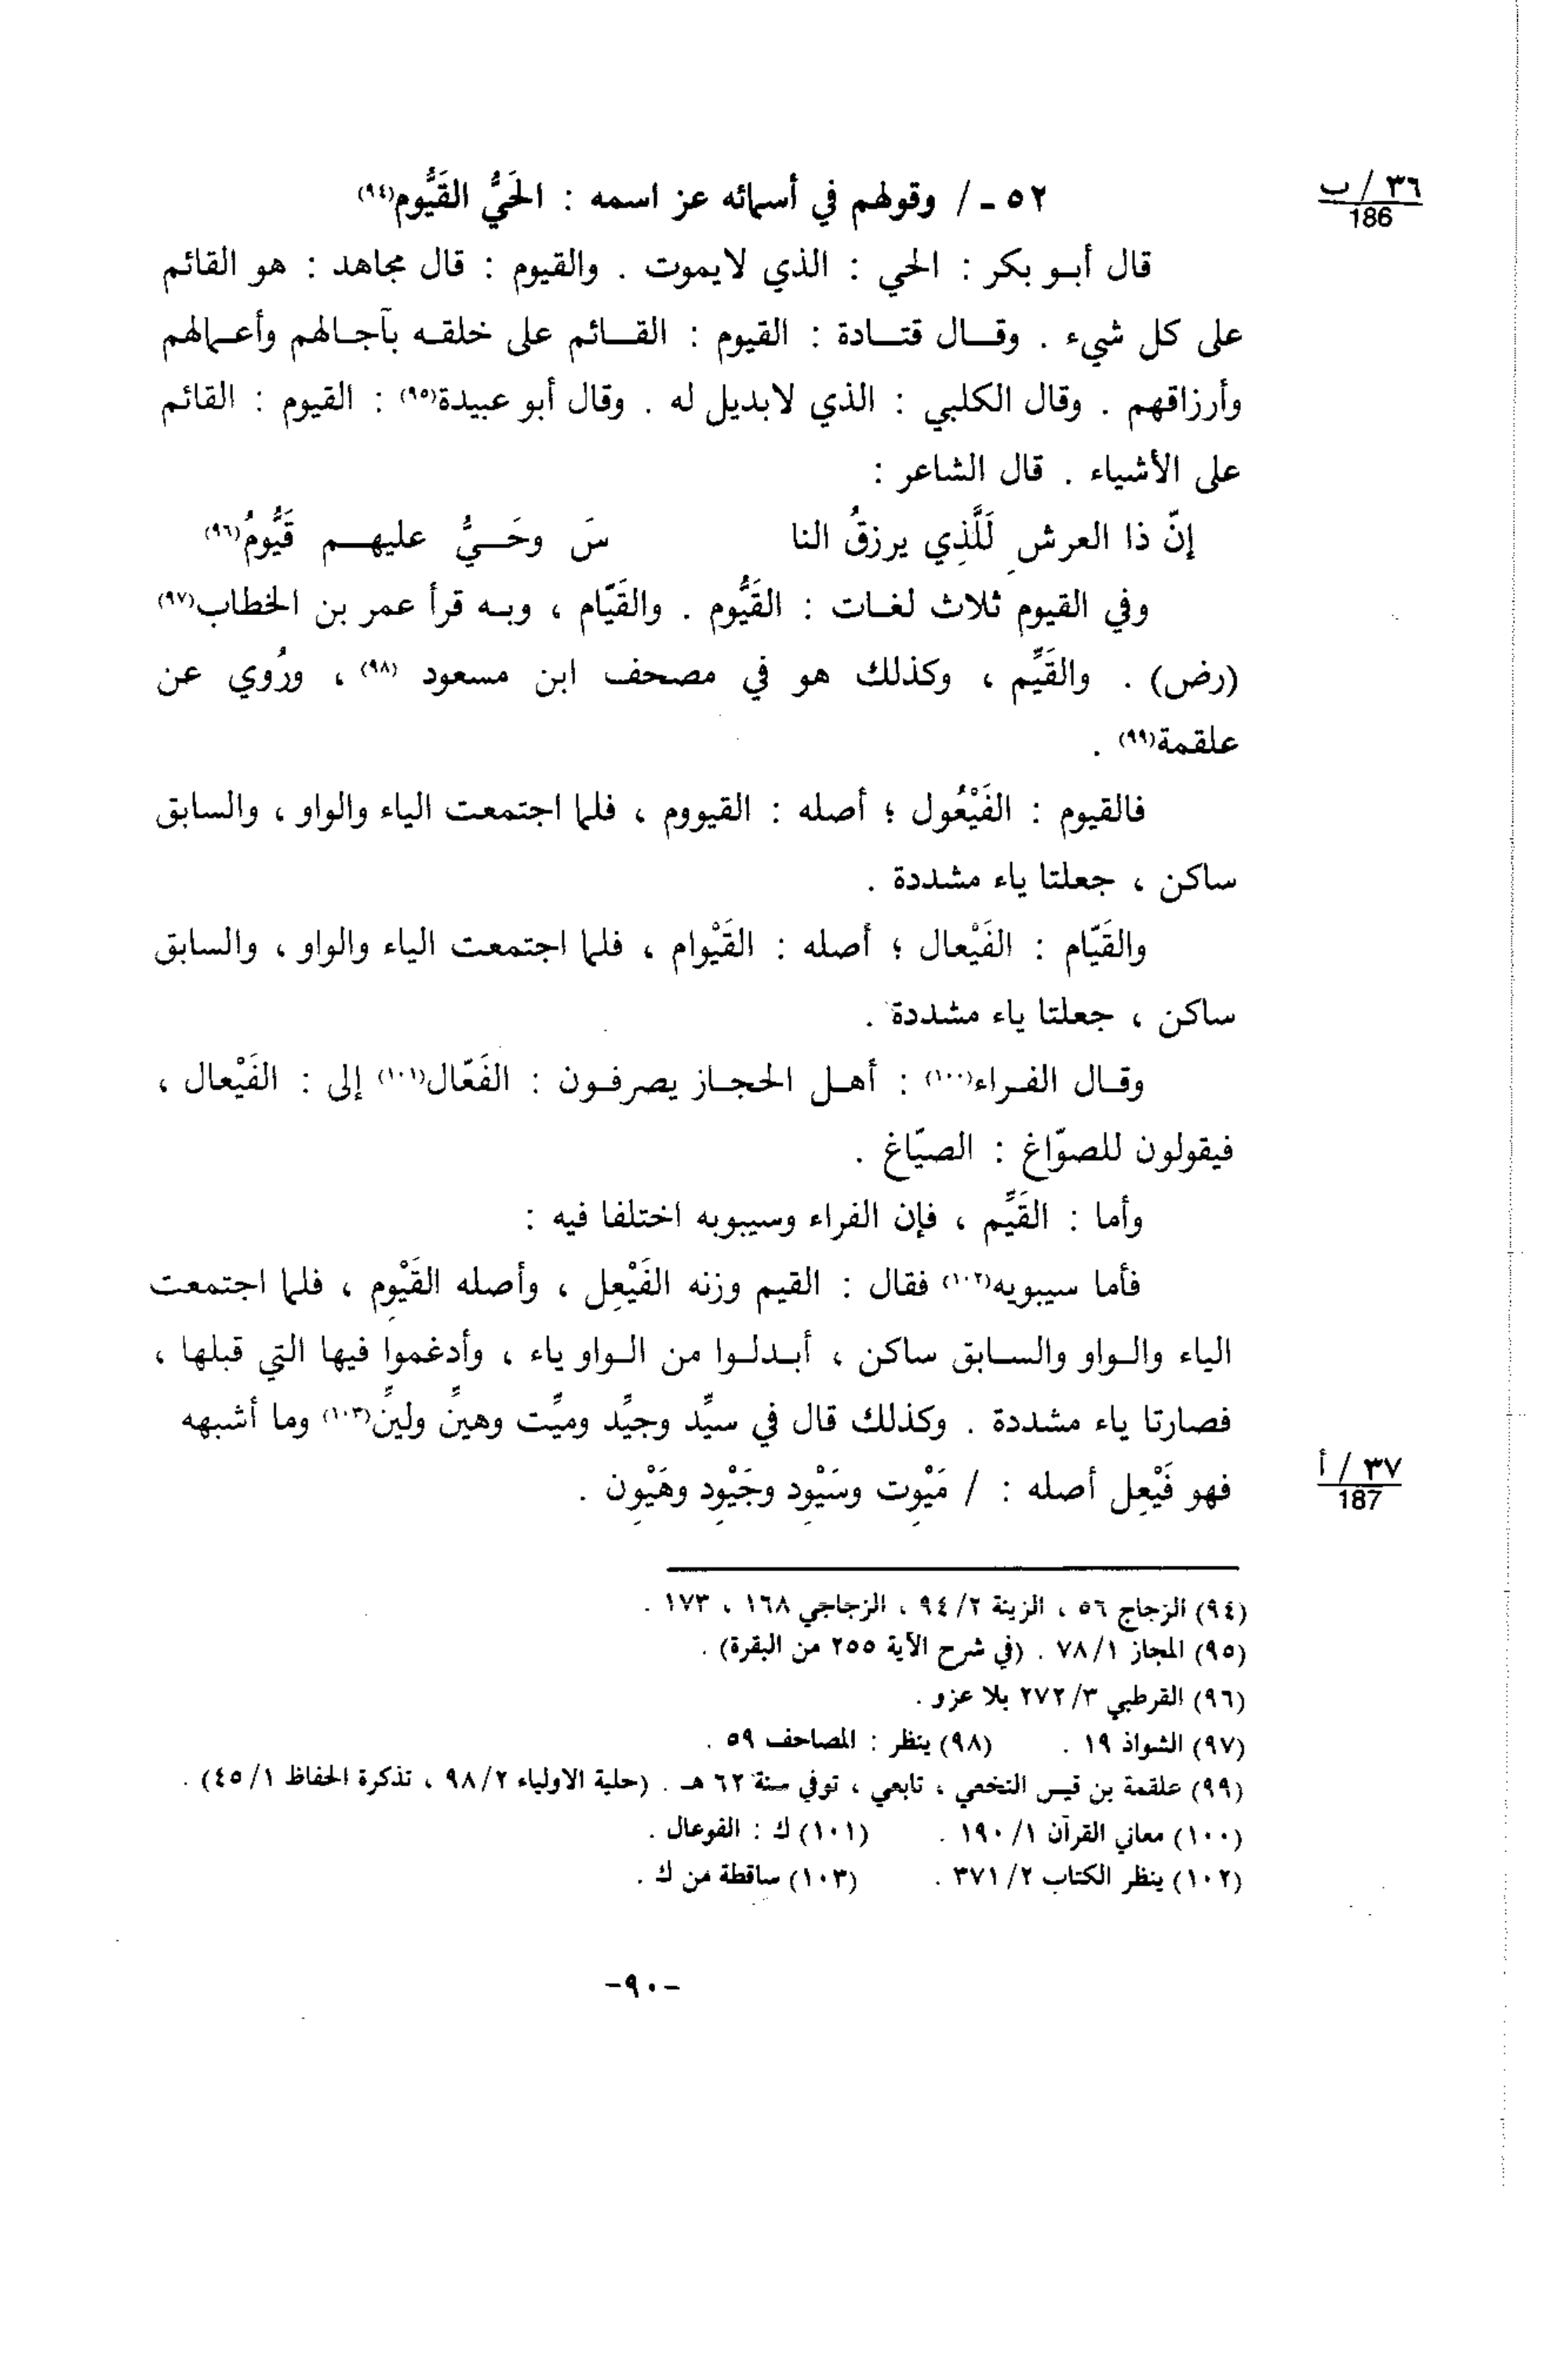 ٣٦ / ب
186
٥٢ ـ / وقولهم في أسمائه عز اسمه : الحَيُّ القَيُّوم(٩٤)
قال أبو بكر : الحي : الذي لايموت . والقيوم : قال مجاهد : هو القائم
على كل شيء . وقال قتادة : القيوم : القائم على خلقه بآجالهم وأعمالهم
وأرزاقهم . وقال الكلبي : الذي لابديل له . وقال أبو عبيدة(٩٥) : القيوم : القائم
على الأشياء . قال الشاعر :
إنّ ذا العرشِ لَلَّذِي يرزقُ النا سَ وحَيٌّ عليهم قَيُّومُ(٩٦)
وفي القيوم ثلاث لغات : القَيُّوم . والقَيّام ، وبه قرأ عمر بن الخطاب(٩٧)
(رض) . والقَيِّم ، وكذلك هو في مصحف ابن مسعود (٩٨) ، ورُوي عن
علقمة(٩٩) .
فالقيوم : الفَيْعُول ؛ أصله : القيووم ، فلما اجتمعت الياء والواو ، والسابق
ساكن ، جعلتا ياء مشددة .
والقَيّام : الفَيْعال ؛ أصله : القَيْوام ، فلما اجتمعت الياء والواو ، والسابق
ساكن ، جعلتا ياء مشددة .
وقال الفراء(١٠٠) : أهل الحجاز يصرفون : الفَعّال(١٠١) إلى : الفَيْعال ،
فيقولون للصوّاغ : الصيّاغ .
وأما : القَيِّم ، فإن الفراء وسيبوبه اختلفا فيه :
فأما سيبويه(١٠٢) فقال : القيم وزنه الفَيْعِل ، وأصله القَيْوِم ، فلما اجتمعت
الياء والواو والسابق ساكن ، أبدلوا من الواو ياء ، وأدغموا فيها التي قبلها ،
فصارتا ياء مشددة . وكذلك قال في سيِّد وجيِّد وميِّت وهيِّن وليِّن(١٠٣) وما أشبهه
فهو فَيْعِل أصله : / مَيْوِت وسَيْوِد وجَيْوِد وهَيْوِن .
٣٧ / أ
187
(٩٤) الزجاج ٥٦ ، الزينة ٢/ ٩٤ ، الزجاجي ١٦٨ ، ١٧٣ .
(٩٥) المجاز ١/ ٧٨ . (في شرح الآية ٢٥٥ من البقرة) .
(٩٦) القرطبي ٣/ ٢٧٢ بلا عزو .
(٩٧) الشواذ ١٩ . (٩٨) ينظر : المصاحف ٥٩ .
(٩٩) علقمة بن قيس النخعي ، تابعي ، توفي سنة ٦٢ هـ . (حلية الاولياء ٢/ ٩٨ ، تذكرة الحفاظ ١/ ٤٥) .
(١٠٠) معاني القرآن ١/ ١٩٠ . (١٠١) ك : الفوعال .
(١٠٢) ينظر الكتاب ٢/ ٣٧١ . (١٠٣) ساقطة من ك .
-٩٠-